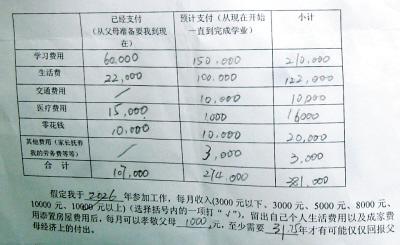 已经支付 预计支付（从现在开始 小计
（从父母准备要我到现 一直到完成学业）
在）
学习费用 60,000 150,000 210,000
生活费 22,000 100,000 122,000
交通费用 / 10,000 10,000
医疗费用 15,000 1000 16000
零花钱 10,000 10,000 20,000
其他费用（家长抚养 / 3,000 3,000
我的劳务费等等）
合计 107,000 274,000 381,000
假定我于 2026 年参加工作，每月收入(3000 元以下、3000 元、5000 元、8000 元、
10000 元、10000 元以上)（选择括号内的一项打“√”），留出自己个人生活费用以及成家费
用添置房屋费用后，每月可以孝敬父母 1000 元，至少需要 31.75 年才有可能仅仅回报父
母经济上的付出。